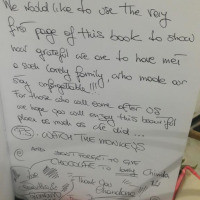 We would like to use the very
first page of this book to show
how grateful we are to have met
a such lovely family, who made our
stay unforgettable!!!
For those who will come after us
we hope you will enjoy this beautiful
place as much as we did ...
P.S: WATCH THE MONKEYS
AND DON'T FORGET TO GIVE
CHOCOLATE TO baby
Thank you